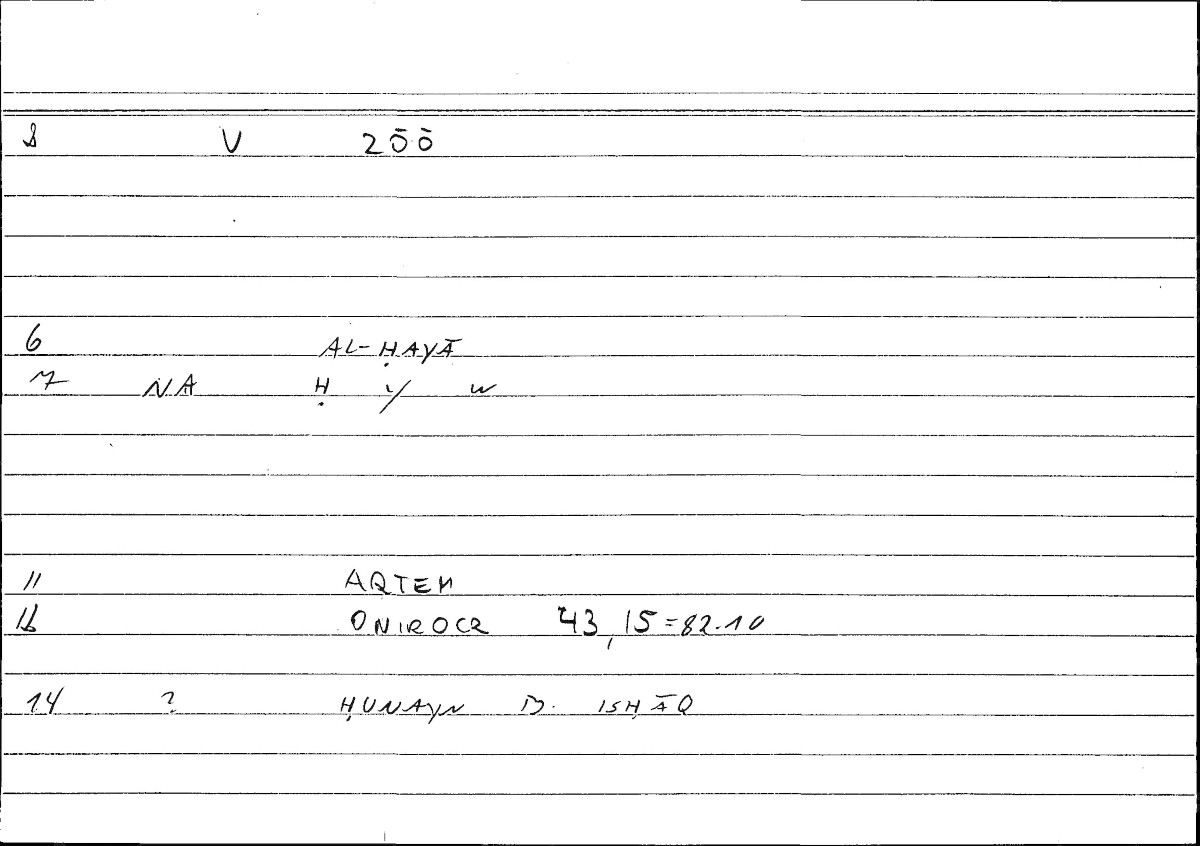 V ζōō
6 AL-ḤAYĀ
7 NA Ḥ y w
11 ARTEM
ONIROCR 43,15=82.10
14 ? ḤUNAYN B. ISḤĀQ